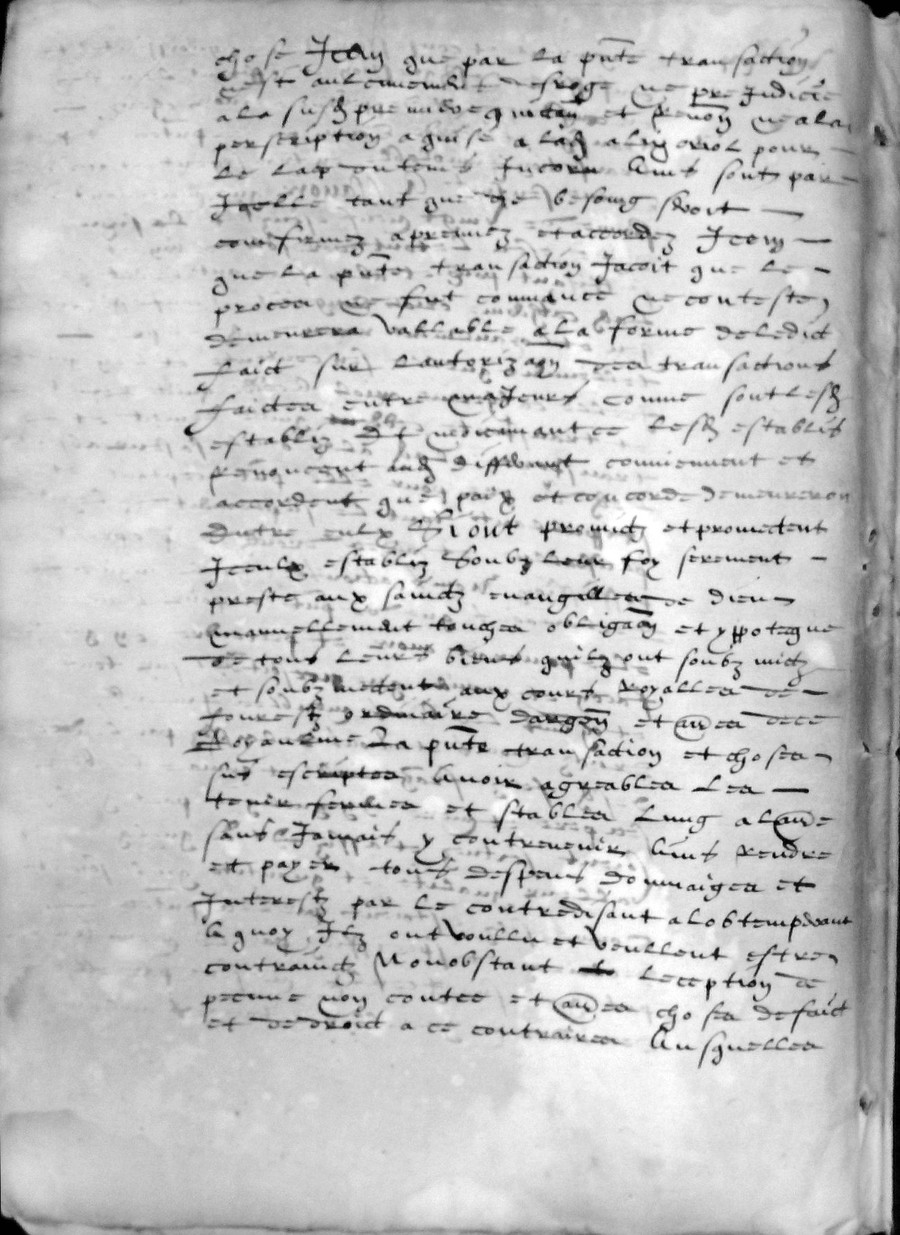 chose Item que par la pnte transaction
nest aulcunement desroge ne preJudicie
a la susd premiere quictan et renon ne a la
perscription aquise a lad oriol pour
le lap du temps Incoru Ains sont par
Jcelle tant que de besoing seroit
confirmez apreuvez et accordez Item
que la pnte transaction Jacoit que le
proces ne fut commance ne conteste
demeurera vallable a la forme de ledict
faict sur lautorizaon des transactions
faictes entre majeurs comme sont lesd
establiz Et moiennant ce lesd establis
Renoncent aud different conviennent et
accordent que paix et concorde demeureron
Entre eulx Et Ont promictz et promectent
Jceulx establiz Soubz leur foy serement
preste aux sainctz evangilles de dieu
manuellement touches obligaon et yppoteque
de tous leurs biens quilz ont soubz mictz
et soubz mectent aux cours Royalles de
fourestz ordinaire dargen et aues de ce
Royaulme La pnte transaction et choses
sus escriptes Avoir agreables Les
tenir fermes et stables Lung a laue
sans Jamais y contrevenir Ains Rendre
et payer tous despens dommaiges et
Interestz par le contredisant a lobtemperant
A quoy Ilz ont voullu et veullent estre
contrainctz Nonobstant leception de
pecune non contee et aues choses de faict
et de droict a ce contraires Ausquelles